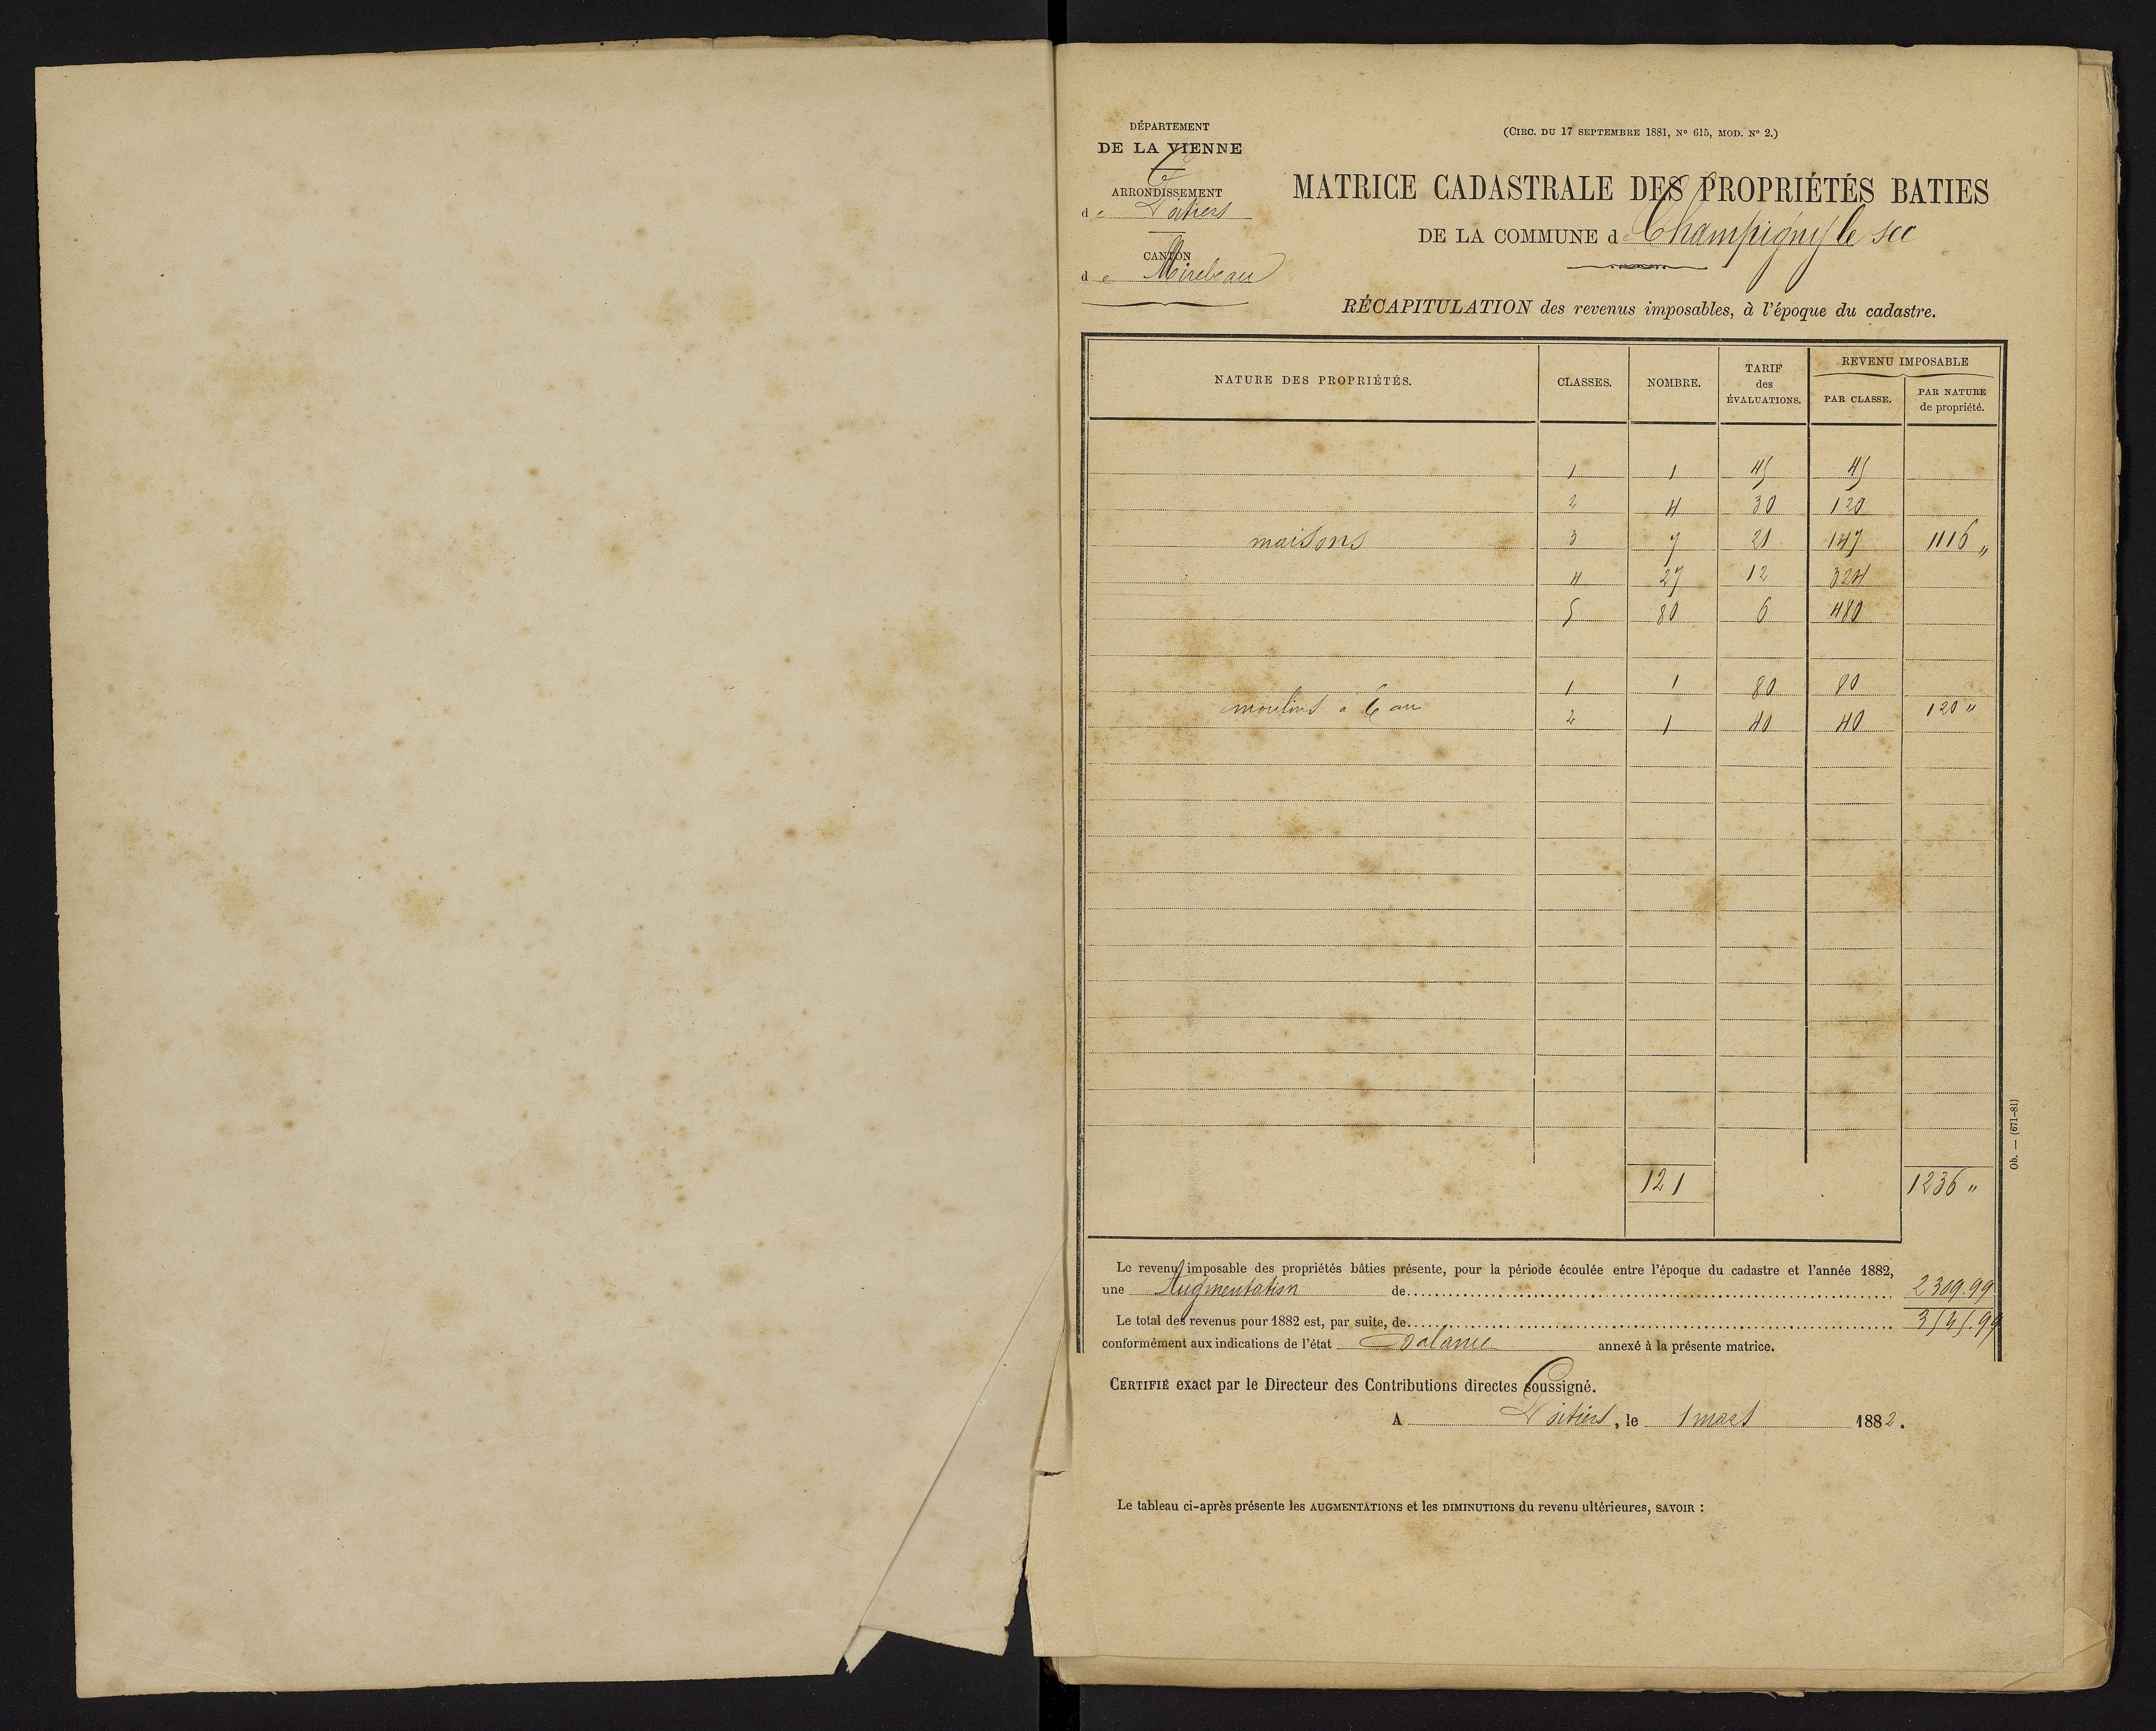 DÉPARTEMENT
DE LA VIENNE
ARRONDISSEMENT
de Poitiers
CANTON
de Mirebeau
(CIRC. DU 17 SEPTEMBRE 1881, Nº 615, MOD. Nº 2.)
MATRICE CADASTRALE DES PROPRIÉTÉS BATIES
DE LA COMMUNE de Champigny le sec
RÉCAPITULATION des revenus imposables, à l'époque du cadastre.
NATURE DES PROPRIÉTÉS. CLASSES. NOMBRE. TARIF des ÉVALUATIONS. REVENU IMPOSABLE PAR CLASSE. PAR NATURE de propriété.
1 1 45 45
2 4 30 120
maisons 3 7 21 147 1116 "
4 27 12 324
5 80 6 480
1 1 80 80
moulins à Eau 120 "
2 1 40 40
121 1236 "
Le revenu imposable des propriétés bâties présente, pour la période écoulée entre l'époque du cadastre et l'année 1882,
une Augmentation de 2309.99
Le total des revenus pour 1882 est, par suite, de 3545.99
conformément aux indications de l'état Balance annexé à la présente matrice.
CERTIFIÉ exact par le Directeur des Contributions directes soussigné.
A Poitiers, le 1 mars 1882.
Le tableau ci-après présente les AUGMENTATIONS et les DIMINUTIONS du revenu ultérieures, SAVOIR :
Ob. — (671-81)